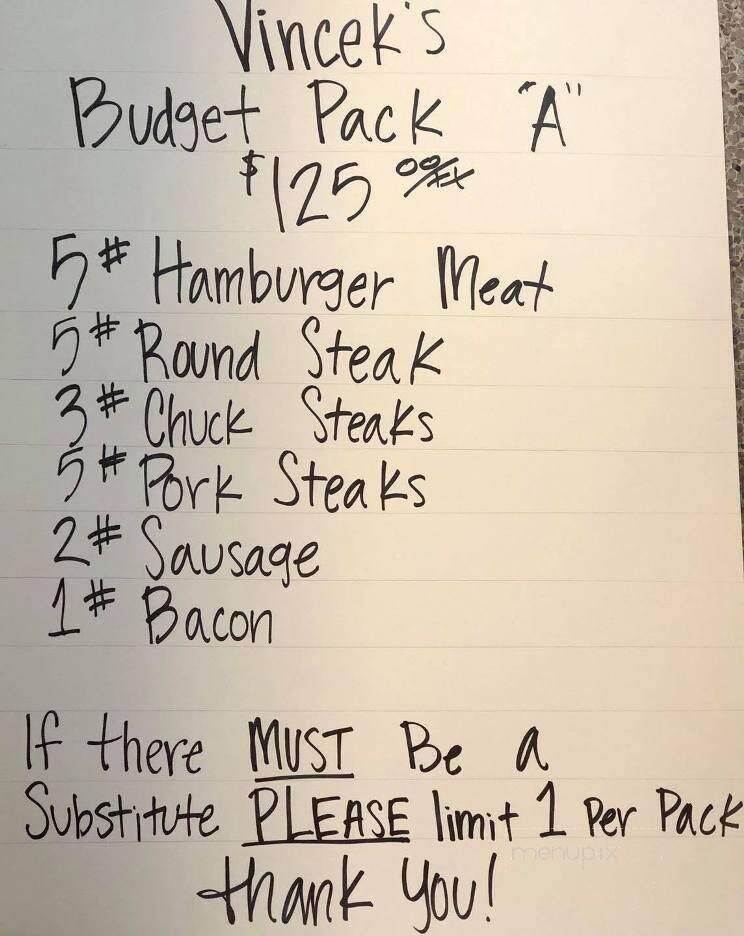 Vincek's
Budget Pack "A"
$125 00/xx
5# Hamburger Meat
5# Round Steak
3# Chuck Steaks
5# Pork Steaks
2# Sausage
1# Bacon
If there MUST Be a
Substitute PLEASE limit 1 Per Pack
menupix
thank you!